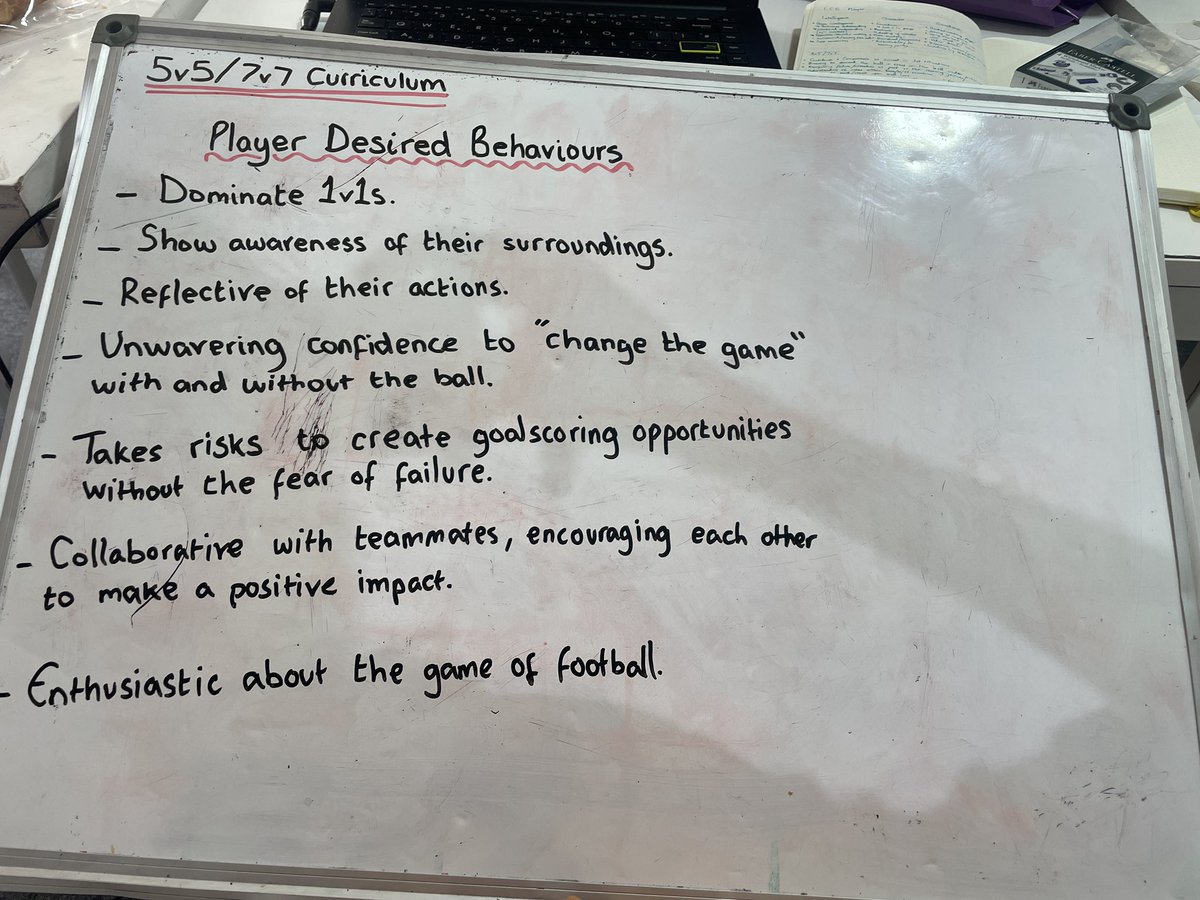 5v5/7v7 Curriculum
Player Desired Behaviours
- Dominate 1v1s.
- Show awareness of their surroundings.
- Reflective of their actions.
- Unwavering confidence to "change the game"
with and without the ball.
- Takes risks to create goalscoring opportunities
without the fear of failure.
- Collaborative with teammates, encouraging each other
to make a positive impact.
- Enthusiastic about the game of football.
FABER-CASTELL